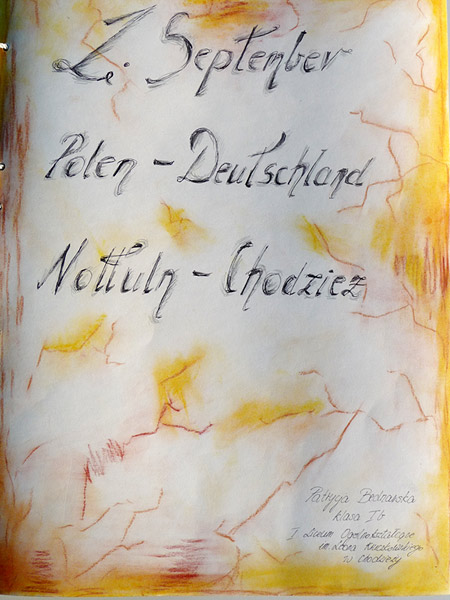 2. September
Polen - Deutschland
Nottuln - Chodziez
Patrycja Bednarska
klasa Ib
I Liceum Ogólnokształcące
im.
w Chodzieży